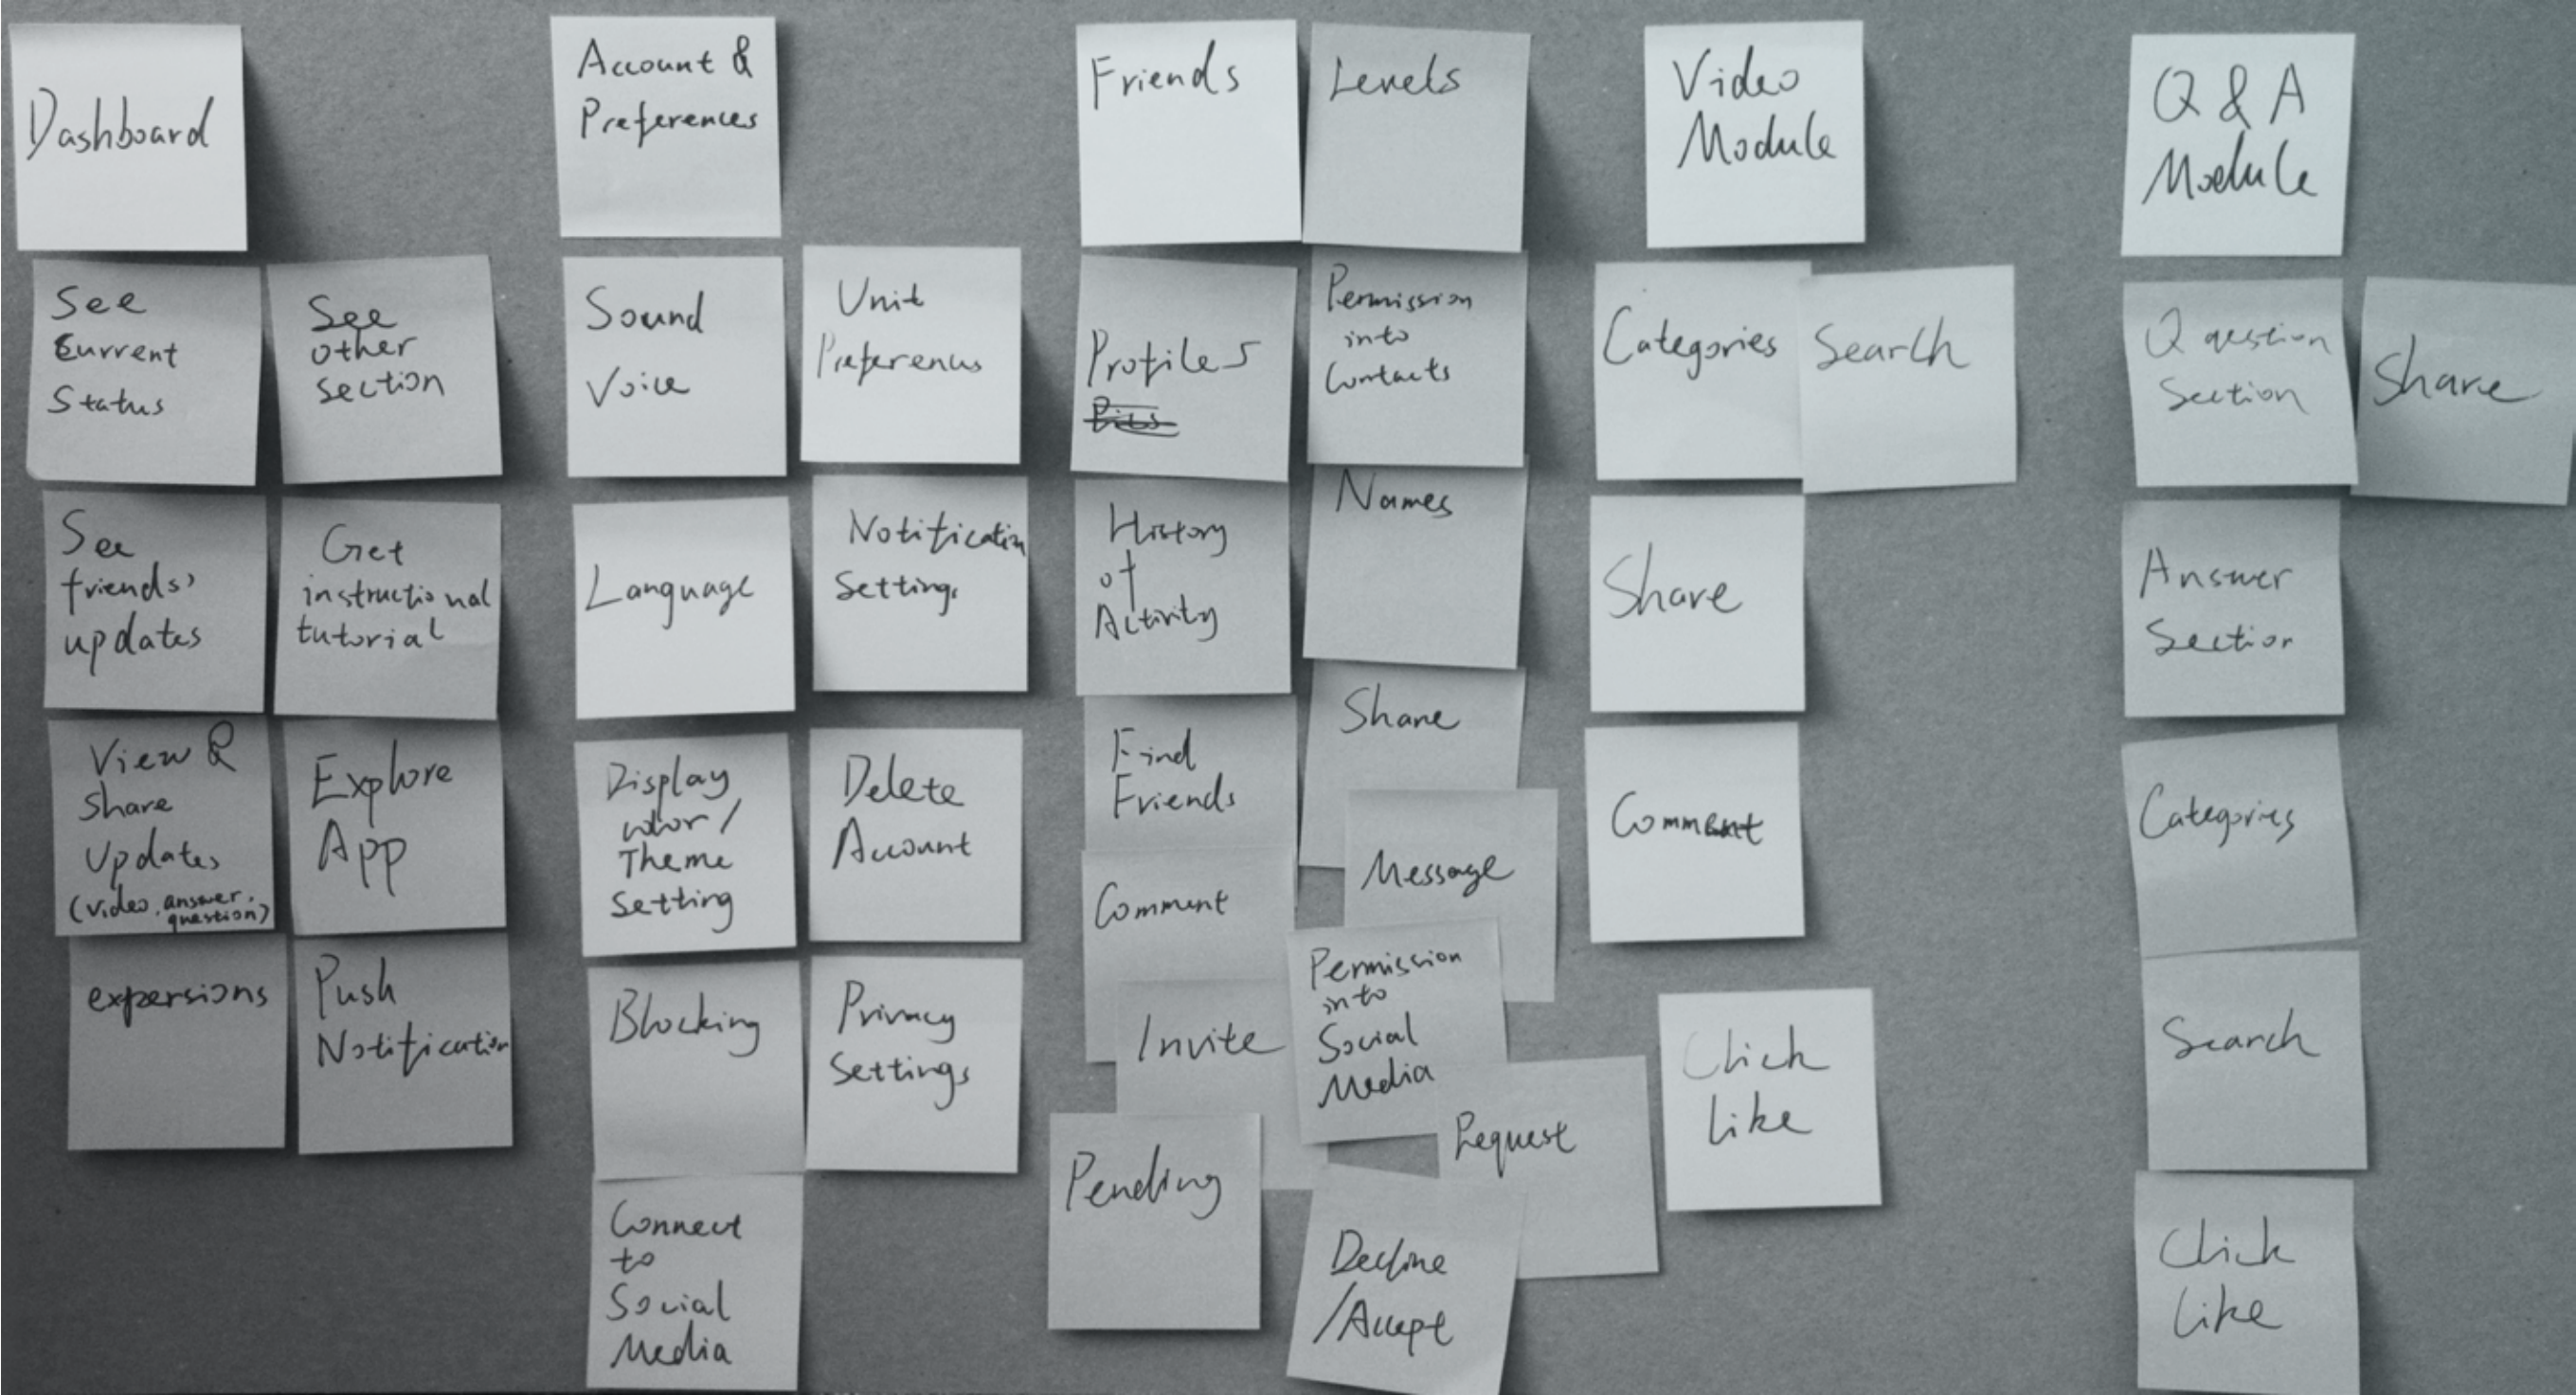 Dashboard
See
Current
Status
See
other
section
See
friends'
updates
Get
instructional
tutorial
View &
share
Updates
(video, answer,
question)
Explore
App
expersions
Push
Notification
Account &
Preferences
Sound
Voice
Unit
Preferences
Language
Notification
Settings
Display
color/
Theme
Setting
Delete
Account
Blocking
Privacy
Settings
Connect
to
Social
Media
Friends
Levels
Profiles
Permission
into
Contacts
History
of
Activity
Names
Find
Friends
Share
Comment
Message
Invite
Permission
into
Social
Media
Pending
Request
Decline
/Accept
Video
Module
Categories
Search
Share
Comment
Click
Like
Q & A
Module
Question
Section
Share
Answer
Section
Categories
Search
Click
Like